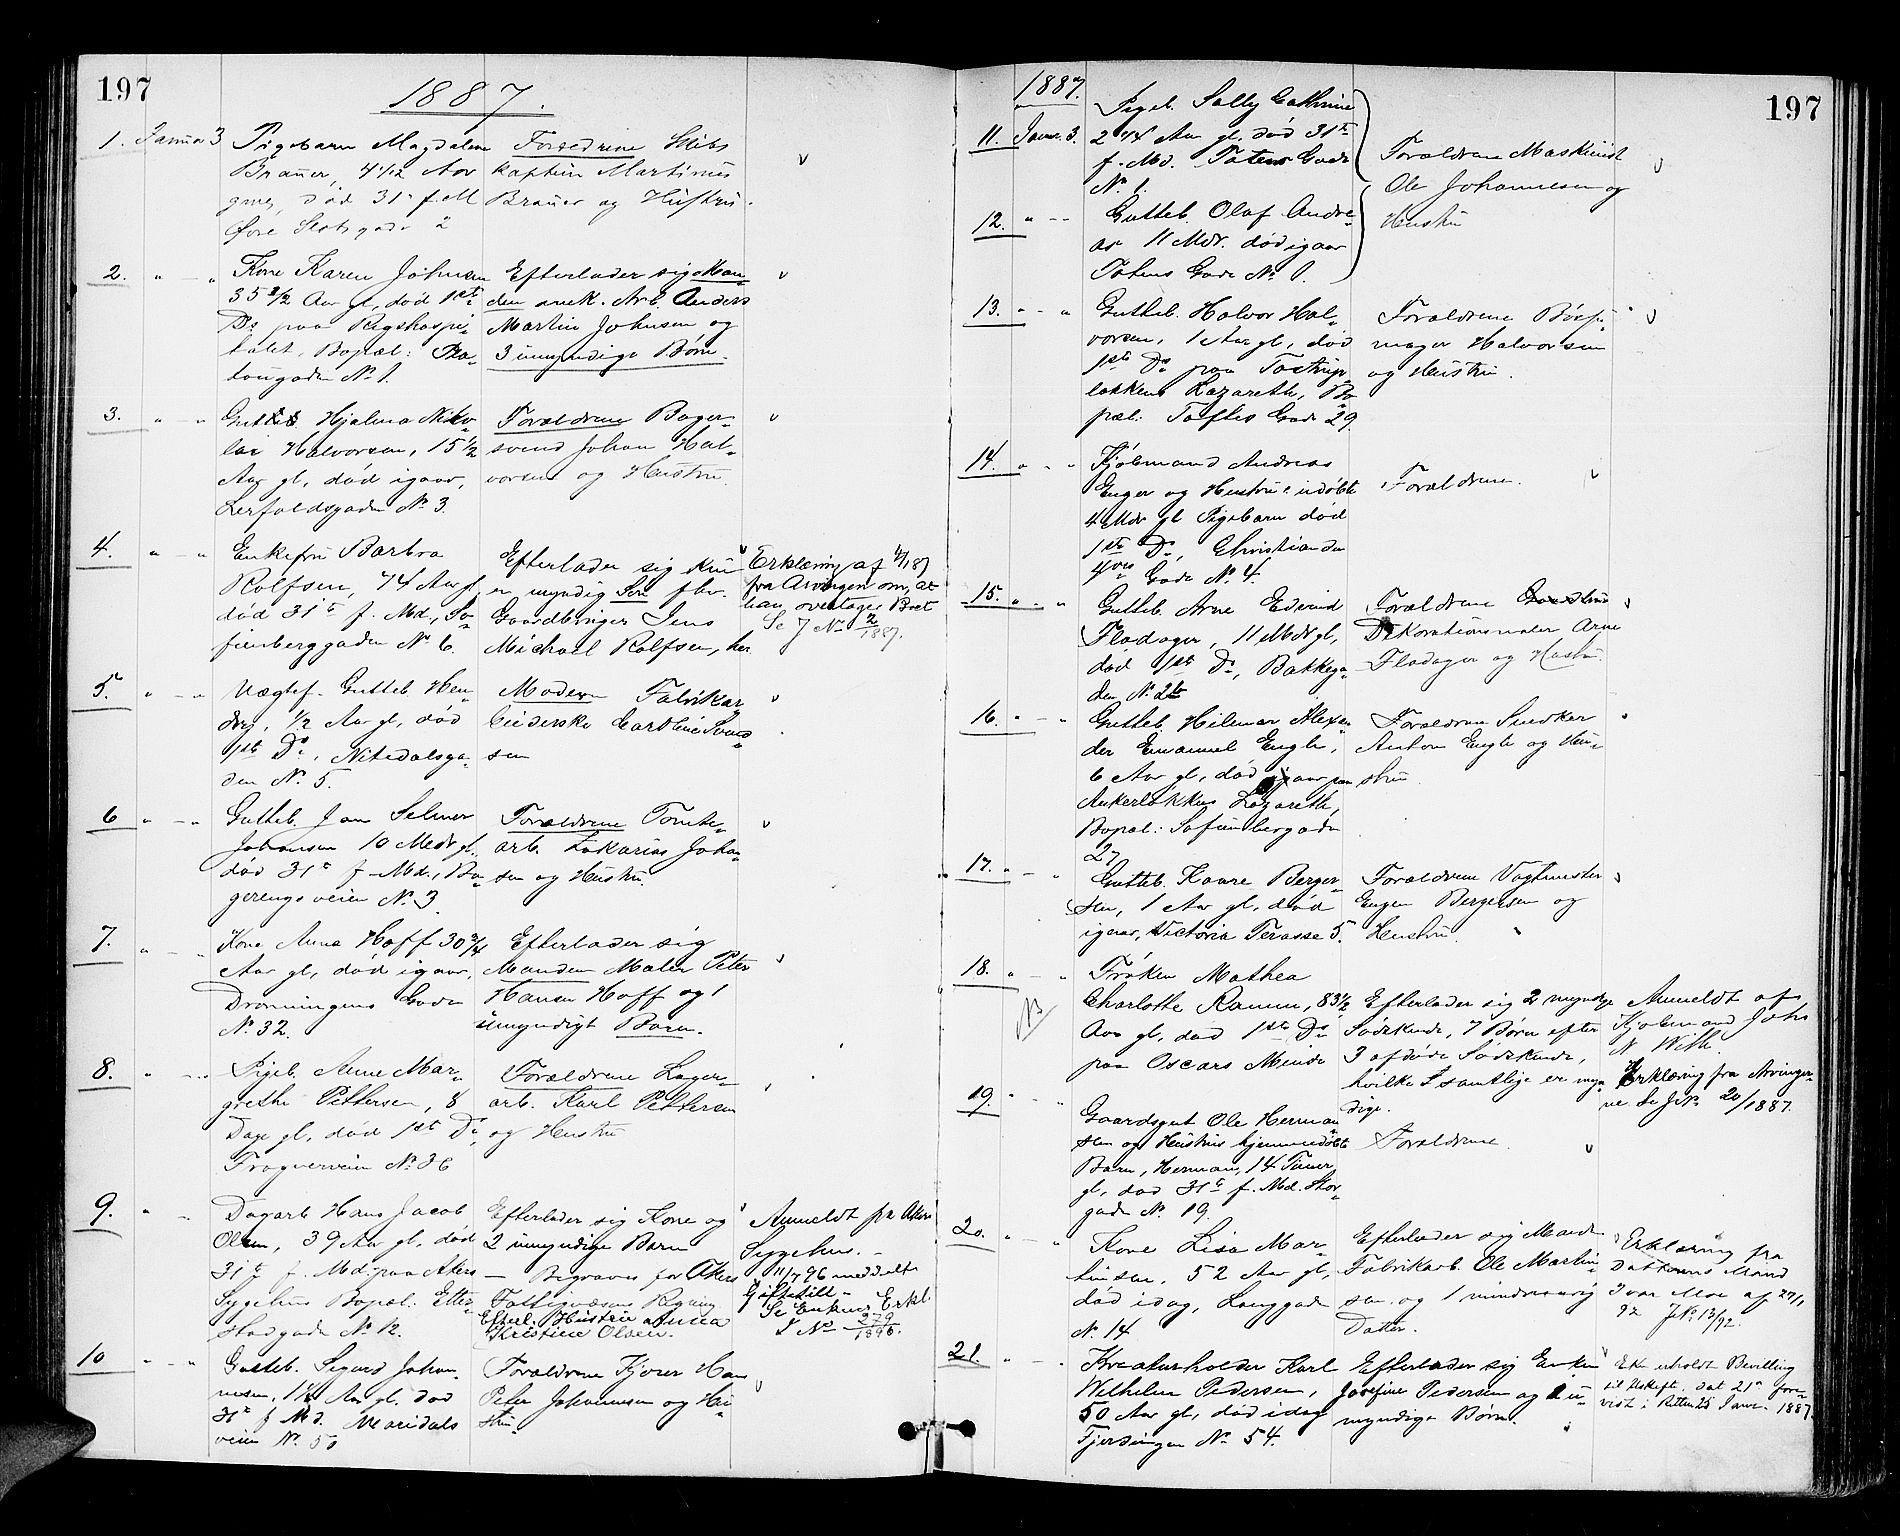 197
1887.
1. Januar 3 Pigebarn Magdalene
Brauer, 4 1/12 Aar
gml, død 31te f. M
Øvre Slotsgade 2
Forældrene Skibs
kaptein Martinius
Brauer og Hustru.
2. " — " Kone Karen Johnsen
35 1/2 Aar gl, død 1ste
Ds paa Rigshospi-
talet, Bopæl: Pla-
tougaden No 1.
Efterlader sig Man
den snek. Arb. Anders
Martin Johnsen og
3 umyndige Børn.
3. " — " Gutteb Hjalmar Niko-
lai Halvorsen, 15 1/2
Aar gl, død igaar,
Lerfaldsgaden No 3.
Forældrene Bager-
svend Johan Hal-
vorsen og Hustru.
4. " — " Enkefru Barbra
Rolfsen, 74 Aar gl,
død 31te f. Md., So-
fienberggaden No 6.
Efterlader sig kun
en myndig Søn fhv.
Gaardbruger Jens
Michael Rolfsen, her
Erklæring af 4/1 87
fra Arvingen om, at
han overtager Boet
Se J No 2/1887.
5. " — " Uægtef. Gutteb. Hen-
dry, 1/2 Aar gl, død
1ste Ds., Nitedalsga-
den No 5.
Moderen Fabrikar
beiderske Cathrine Svend-
sen
6 " — " Gutteb. Jan Selmer
Johansen 10 Mdr gl.
død 31te f. Md., Bø-
gerengsveien No 3.
Forældrene Tomte-
arb. Zakarias Johan-
sen og Hustru.
7. " — " Kone Anna Hoff 30 3/4
Aar gl, død igaar,
Dronningens Gade
No 32.
Efterlader sig
Manden Maler Peter
Hansen Hoff og 1
umyndigt Barn.
8. " — " Pigeb. Anne Mar-
grethe Pettersen, 8
Dage gl, død 1ste Ds
Frognerveien No 36
Forældrene Lager-
arb. Karl Pettersen
og Hustru
9. " " Dagarb Hans Jacob
Olsen, 39 Aar gl, død
31te f. Md. paa Akers
Sygehus Bopæl: Etter-
stadgade No 12.
Efterlader sig Kone og
2 umyndige Børn
— Begraves for Akers
Fattigvæsens Regning
Efterl. Hustru Anna
Kristine Olsen.
Anmeldt fra Akers
Sygehus. —
11/7 96 meddelt
Giftetill-
Se Enkens Erkl.
J No 279/1896.
10 " — " Gutteb. Sigurd Johan-
nesen, 1 1/2 Aar gl. død
31te f Md. Maridals
veien No 50
Forældrene Kjører Hans
Peter Johannesen og Hu-
stru.
197
1887.
11. Januar 3. Pigeb. Sally Cathrine
2 3/4 Aar gl, død 31te
f. Md. Totens Gade
No 1.
12. " — " Gutteb. Olaf Andre-
as 11 Mdr. død igaar
Totens Gade No 1.
Forældrene Maskinist
Ole Johannesen og
Hustru
13. " — " Gutteb. Halvor Hal-
vorsen, 1 Aar gl, død
1ste Ds paa Tostrup-
løkkens Lazareth, Bo
pæl: Toftes Gade 29.
Forældrene Børste-
mager Halvorsen
og Hustru.
14. " — " Kjøbmand Andreas
Enger og Hustrus udøbte
4 Mdr gl Pigebarn død
1ste Ds, Christian den
4des Gade No 4.
Forældrene.
15. " — " Gutteb. Arne Edvind
Fladager, 11 Mdr gl,
død 1ste Ds, Bakkega-
den No 2b
Forældrene
Dekorationsmaler Arne
Fladager og Hustru.
16. " — " Gutteb. Hilmar Alexan
der Emanuel Engh,
6 Aar gl, død igaar paa
Ankerløkkens Lazareth,
Bopæl: Sofienbergaden
27
Forældrene Snedker
Anton Engh og Hu-
stru.
17. " — " Gutteb. Kaare Berger-
sen, 1 Aar gl, død
igaar, Victoria Terasse 5.
Forældrene Vagtmester
Eugen Bergersen og
Hustru.
18. " — " Frøken Mathea
Charlotte Ramm, 83 1/2
Aar gl, død 1ste Ds
paa Oscars Minde
Efterlader sig 2 myndige
Sødskende, 7 Børn efter
3 afdøde Sødskende,
hvilke samtlige er myn-
dige.
Anmeldt af
Kjøbmand Johs
N. With.
Erklæring fra Arvinger-
ne se J.No. 20/1887.
19. " — " Gaardsgut Ole Herman
sen og Hustrus hjemmedøbte
Barn, Herman, 14 Timer
gl, død 31te f. Md. Stor-
gade No. 19.
Forældrene.
20. " — " Kone Lisa Mar-
tinsen, 52 Aar gl,
død idag, Langgade
No 14
Efterlader sig Mand
Fabrikarb. Ole Martin-
sen og 1 mindreaarig
Datter.
Erklæring fra
Datterens Mand
Ivar Moe af 27/1
92 J.No 13/92.
21. " — " Kreaturholder Karl
Wilhelm Pedersen,
50 Aar gl, død idag
Fjerdingen No 54.
Efterlader sig Enken
Josefine Pedersen og 2 u-
myndige Børn.
Enke erholdt Bevilling
til Uskifte, dat 21de fore-
vist i Retten 25 Janr. 1887.